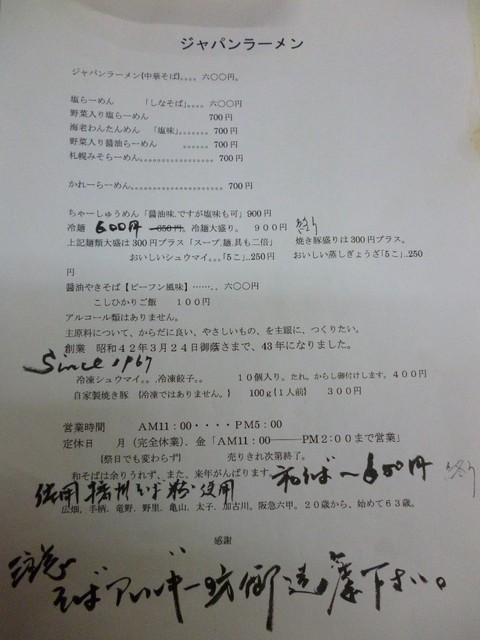 ジャパンラーメン
ジャパンラーメン{中華そば}。。。。六〇〇円。
塩らーめん 「しなそば」。。。。六〇〇円
野菜入り塩らーめん 700円
海老わんたんめん 「塩味」。。。。。。。700円
野菜入り醤油らーめん 。。。。。。700円
札幌みそらーめん。。。。。。。。。。。。。。。。700円
かれーらーめん。。。。。。。。。。。。。。。。。。700円
ちゃーしゅうめん「醤油味、ですが塩味も可」900円
冷麺 600円 650円。冷麺大盛り。900円 終り
上記麺類大盛は300円プラス「スープ、麺、具も二倍」 焼き豚盛りは300円プラス。
おいしいシュウマイ。。。「5こ」..250円 おいしい蒸しぎょうざ「5こ」..250
円
醤油やきそば【ビーフン風味】……。。六〇〇円
こしひかりご飯 100円
アルコール類はありません。
主原料について、からだに良い、やさしいもの、を主眼に、つくりたい。
創業 昭和42年3月24日御蔭さまで、43年になりました。
Since 1967
冷凍シュウマイ。。.冷凍餃子。。 10個入り。たれ。からし御付けします。400円
自家製焼き豚 {冷凍ではありません。} 100g{1人前} 300円
営業時間 AM11:00・・・・PM5:00
定休日 月(完全休業). 金「AM11:00───PM2:00まで営業」
{祭日でも変わらず} 売りきれ次第終了。
和そばは余りうれず、また、来年がんばります。 和そば〜650円 終り
播州そば粉使用
広畑. 手柄. 竜野. 野里. 亀山. 太子. 加古川. 阪急六甲. 20歳から、始めて63歳。
感謝
そばアレルギー 下さい。